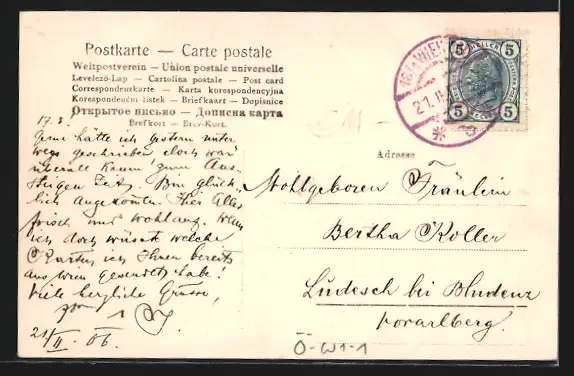 Postkarte — Carte postale
Weltpostverein — Union postale universelle
Levelező-Lap — Cartolina postale — Post card
Correspondenzkarte — Karta korespondencyjna
Korespondenční lístek — Briefkaart — Dopisnice
Открытое письмо — Дописна карта
Brefkort — Brev-Kort.
5 HELLER 5
5 5
2.1. II
Adresse
17.3.
Gern hätte ich gestern unter
wegs geschrieben, doch war
überall kaum zum Aus-
steigen Zeit. Bin glück-
lich angekommen. Hier Alles
frisch und wohlauf. Wenn
ich doch wüsste welche
Karten ich Ihnen bereits
aus Wien gesendet habe!
Viele herzliche Grüsse,
21/II. 06.
Wohlgeboren Fräulein
Bertha Koller
Ludesch bei Bludenz
Vorarlberg.
Ö-W1-1